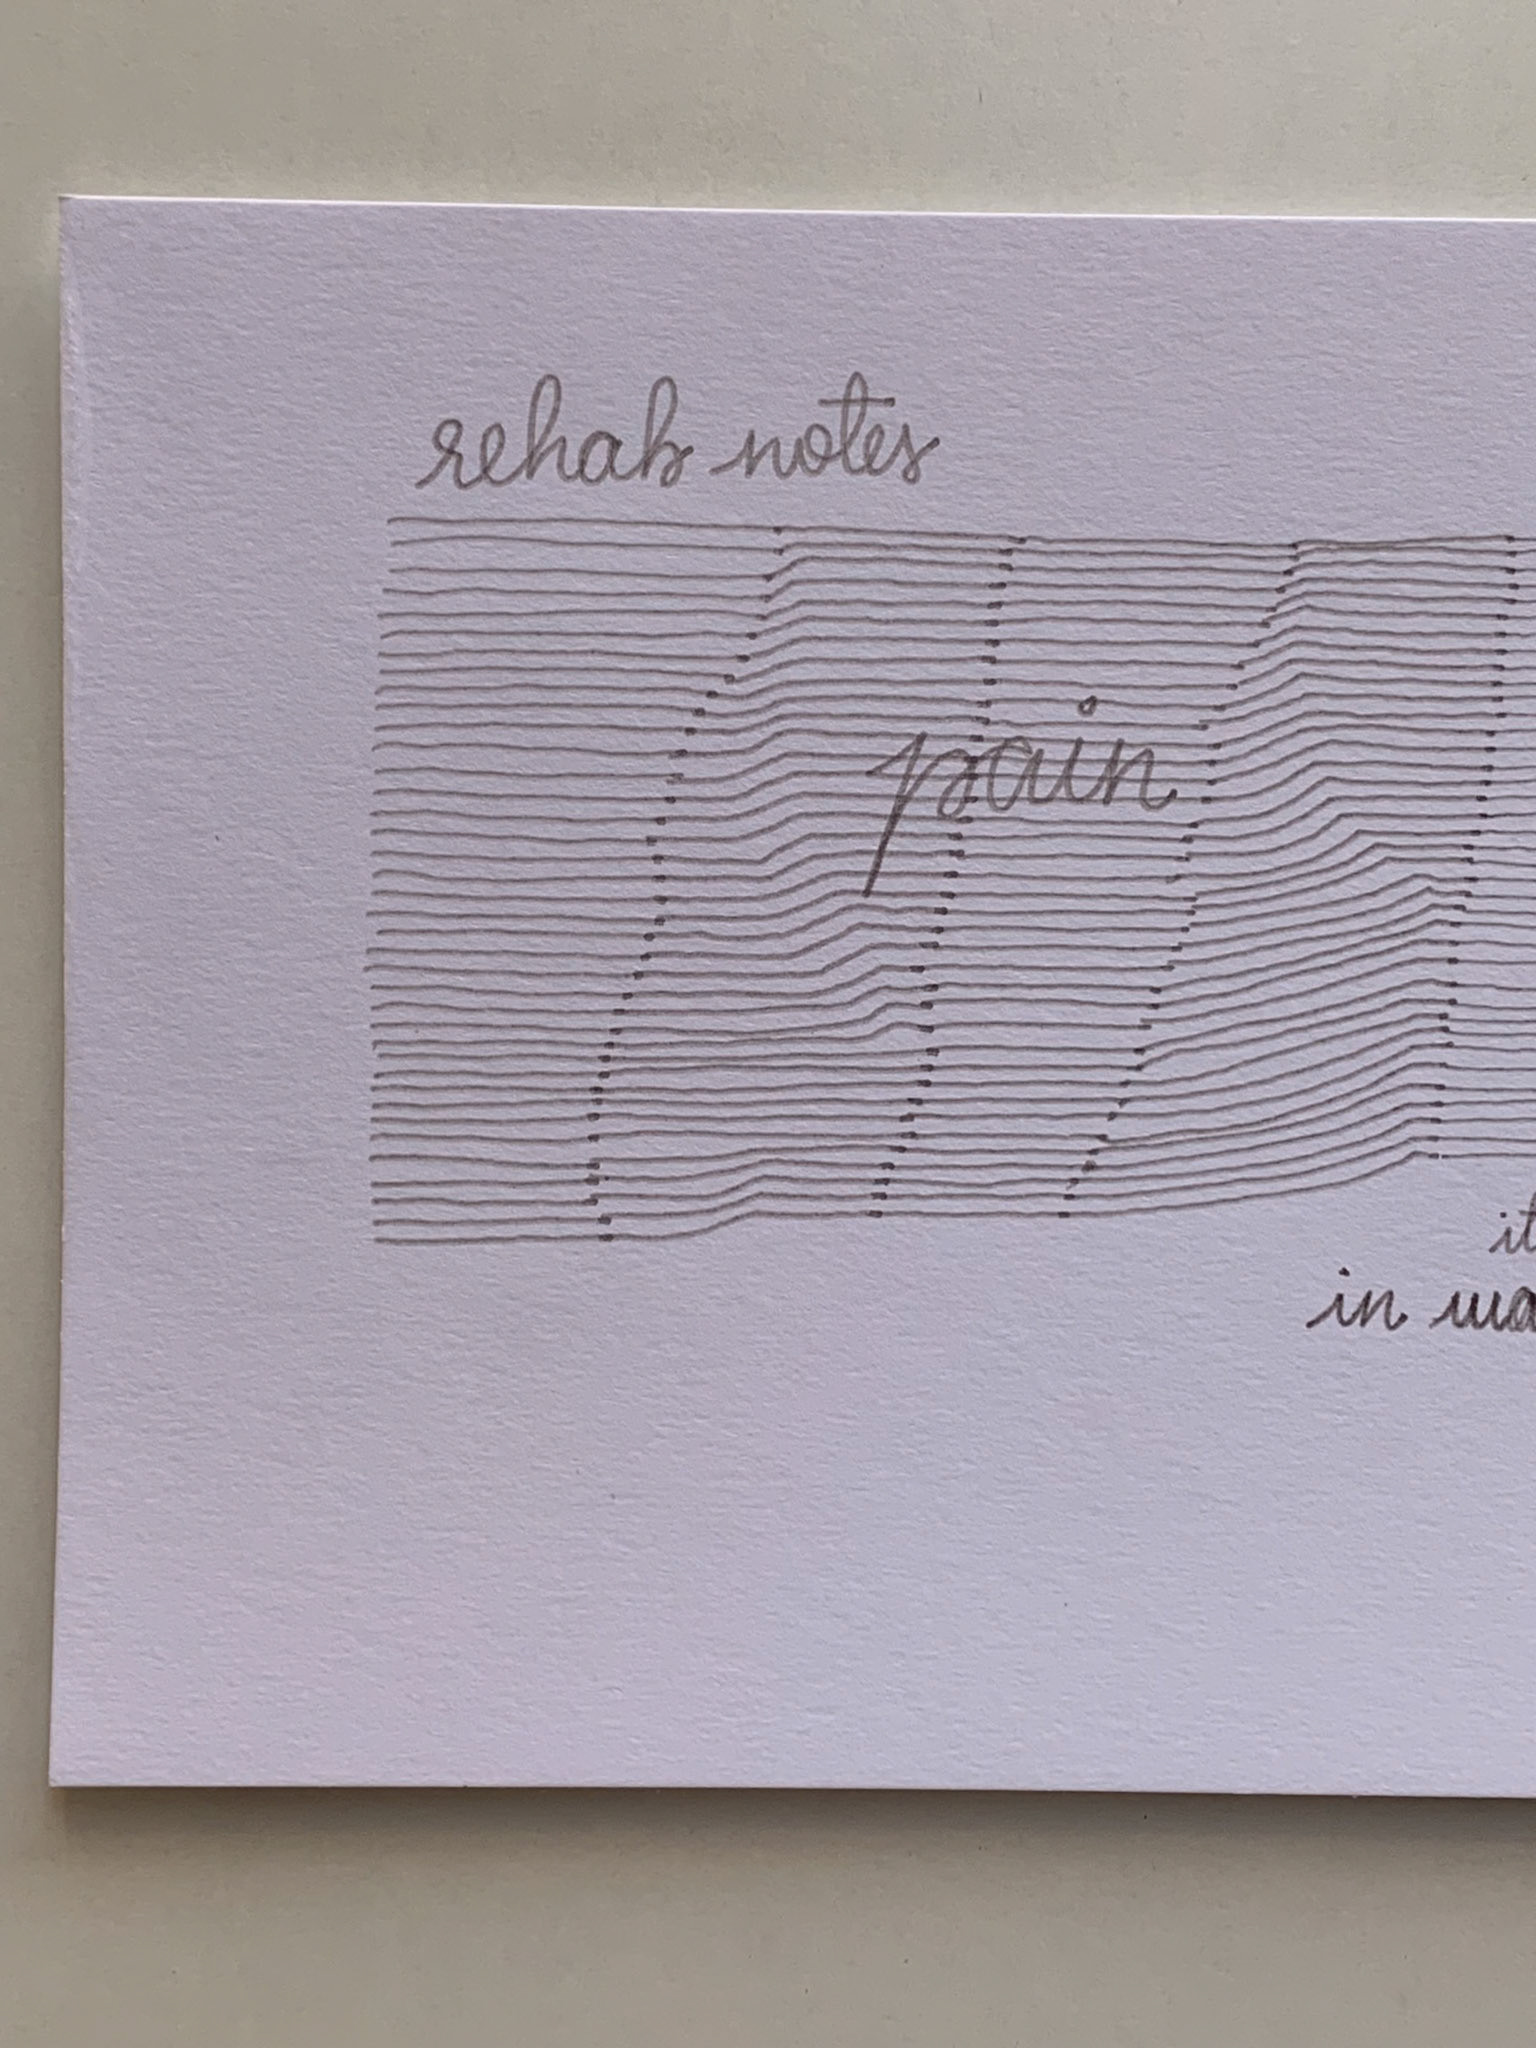 rehab notes
pain
it
in